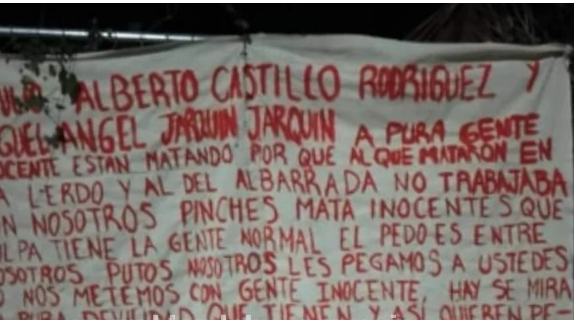 ALBERTO CASTILLO RODRIGUEZ Y
ANGEL JARQUIN JARQUIN A PURA GENTE
OCENTE ESTAN MATANDO POR QUE AL QUE MATARON EN
A LERDO Y AL DEL ALBARRADA NO TRABAJABA
N NOSOTROS PINCHES MATA INOCENTES QUE
ULPA TIENE LA GENTE NORMAL EL PEDO ES ENTRE
OSOTROS PUTOS NOSOTROS LES PEGAMOS A USTEDES
O NOS METEMOS CON GENTE INOCENTE, HAY SE MIRA
PURA DEVILIDAD QUE TIENEN Y ASI QUIEREN PE-